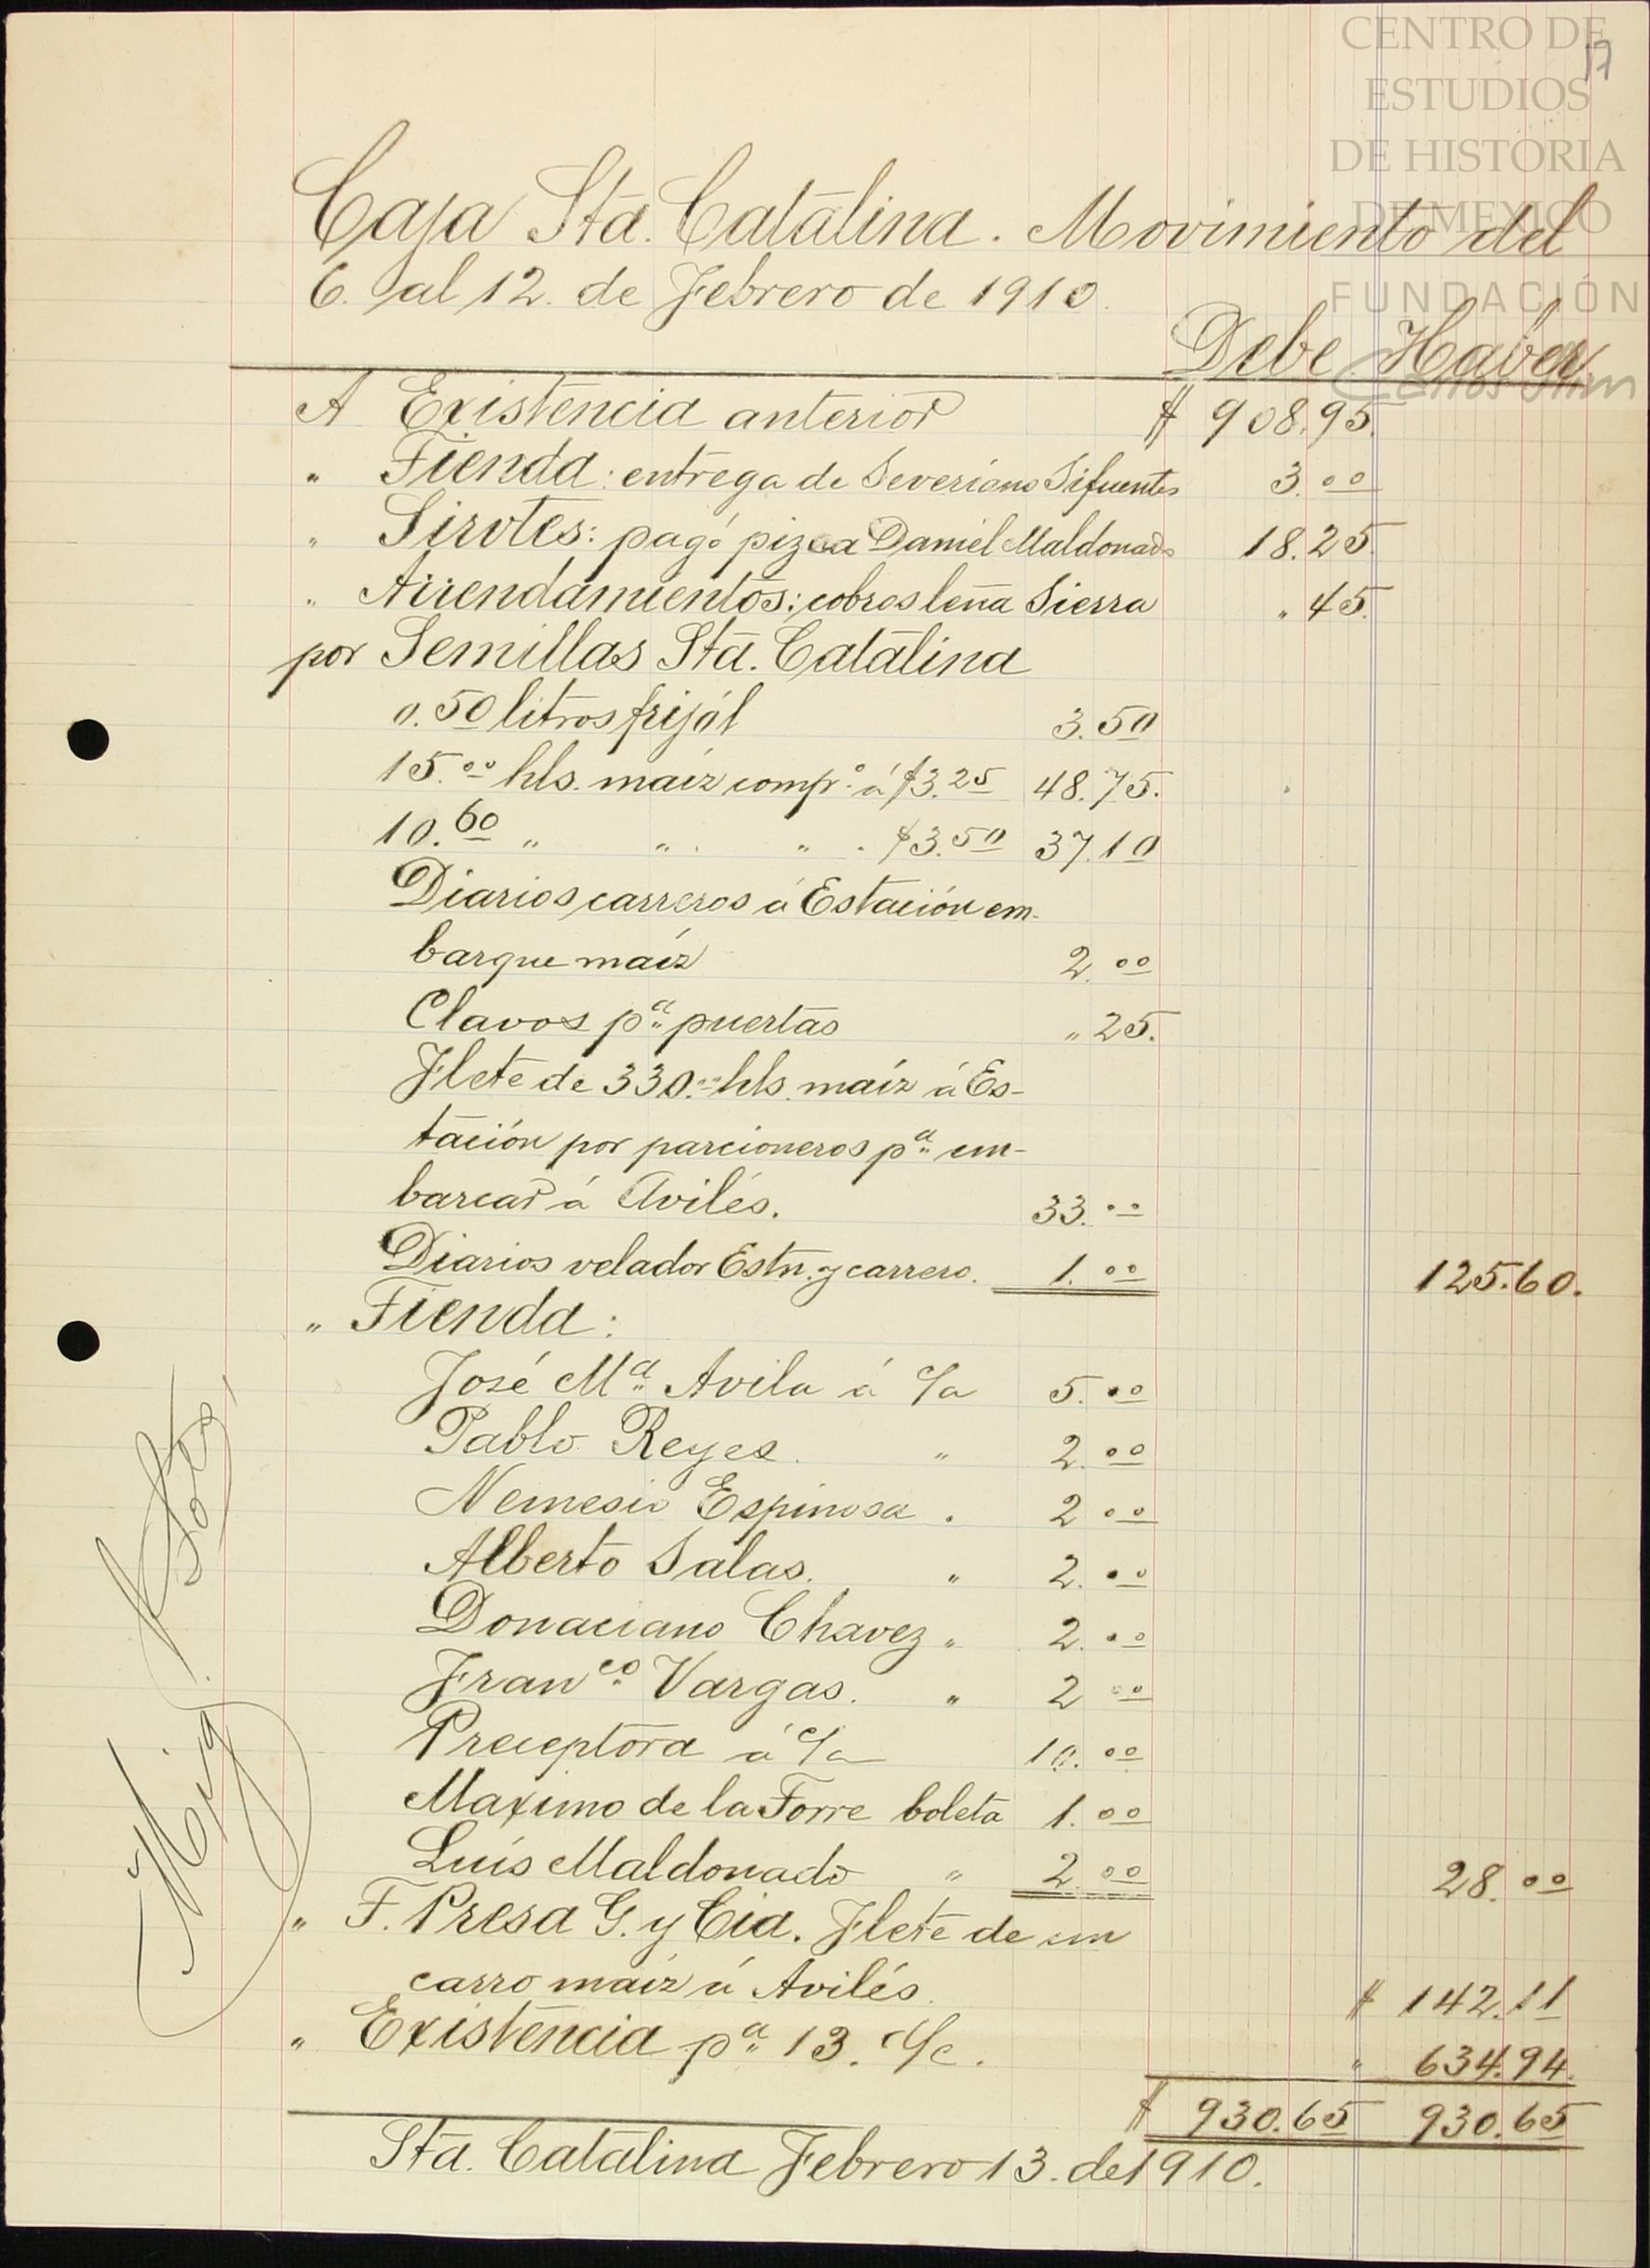 CENTRO DE
ESTUDIOS
DE HISTORIA
DE MEXICO
FUNDACIÓN
Carlos Slim
17
Caja Sta. Catalina. Movimiento del
6. al 12. de Febrero de 1910.
Debe Haber
A Existencia anterior $ 908.95.
" Tienda: entrega de Severiano Sifuentes 3.00
" Sirotes: pagó pizca Daniel Maldonado 18.25.
" Arrendamientos: cobros leña Sierra " 45.
por Semillas Sta. Catalina
0.50 litros frijól 3.50
15.00 hls. maíz comp.o á $3.25 48.75.
10.60 " " " . $3.50 37.10
Diarios carreros á Estación em-
barque maíz 2.00
Clavos pa. puertas " 25.
Flete de 330.00 hls. maíz á Es-
tación por parcioneros pa. em-
barcar á Avilés. 33.00
Diarios velador Estn. y carrero. 1.00 125.60.
" Tienda:
José Ma. Avila á c/a 5.00
Pablo Reyes. " 2.00
Nemesio Espinosa . 2 00
Alberto Salas. " 2.00
Donaciano Chavez " 2.00
Franco. Vargas. " 2 00
Preceptora á c/a 10.00
Maximo de la Torre boleta 1.00
Luis Maldonado " 2.00 28.00
" F. Presa G. y Cia. Flete de un
carro maíz á Avilés. $ 142.11
" Existencia pa. 13. c/c. " 634.94.
$ 930.65 930.65
Sta. Catalina Febrero 13. de 1910.
Mig. Soto